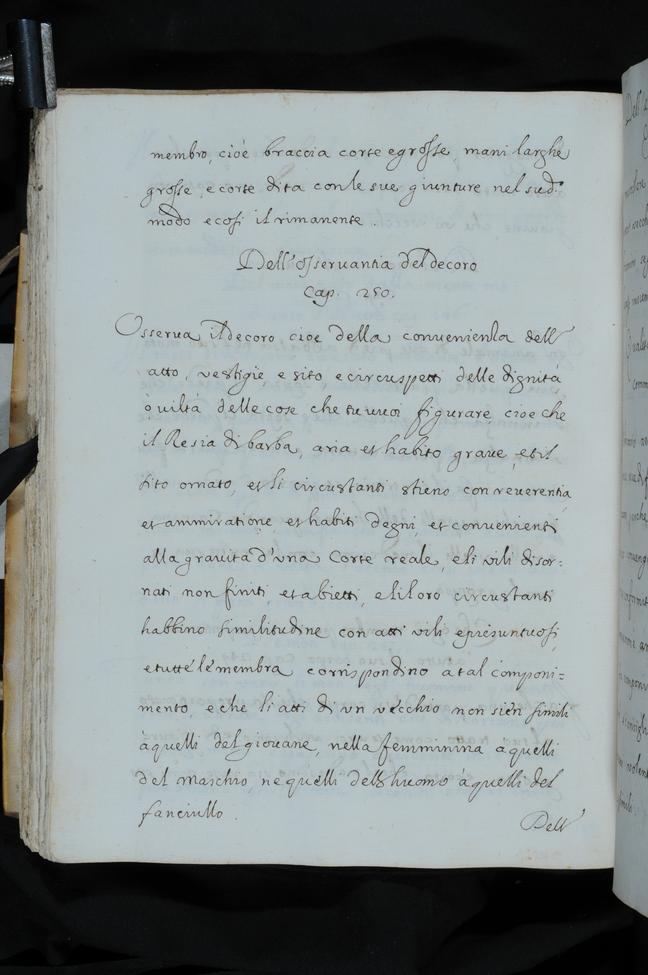 membro, cioè braccia corte e grosse, mani larghe
grosse, e corte dita con le sue giunture nel sud.º
modo e così il rimanente.
Dell'osseruantia del decoro
Cap. 250.
Osserua il decoro cioe della conuenienza dell'
atto, vestigie e sito e circuspetti delle dignità
ò uiltà delle cose che tu uuoi figurare, cioe che
il Re sia di barba, aria et habito graue, et il
sito ornato, et li circustanti stieno con reuerentia,
et ammiratione et habiti degni, et conuenienti
alla grauità d'una Corte reale, e li vili disor=
nati non finiti et abietti, e li loro circustanti
habbino similitudine con atti vili e presuntuosi,
e tutte le membra corrispondino a tal componi=
mento, e che li atti di un vecchio non sien simili
aquelli del giouane, nella femminina a quelli
del maschio, ne quelli dell'huomo à quelli del
fanciullo.
Dell'